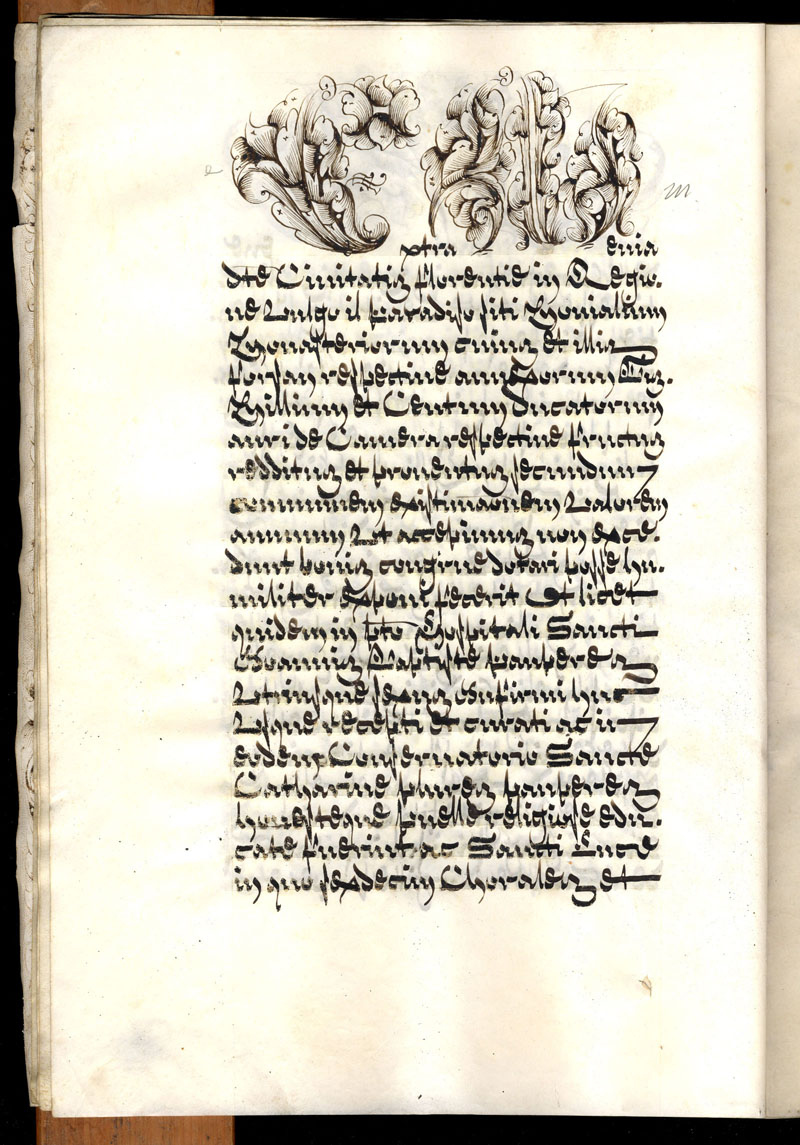 Extra Moenia
dte Civitatis florentie in Regio-
ne Vulgo il Paradiso siti Monialium
Monasteriorum cuius et illis
forsan respective annexorum
Millium et Centum ducatorum
auri de Camera respective fructus
redditus et proventus secundum
communem existimaonem Valorem
annuum Ut accepimus non exce-
dunt bonis congrue dotari posse hu-
militer exponi fecerit Et licet
quidem in pto Hospitali Sancti
Joannis Baptiste pauperes
Utriusque sexus Infirmi huc
Usque recepti et curati ac in
eodem Conservatorio Sancte
Catharine plures pauperes
honesteque puelle religiose edu-
cate fuerint ac Sancti Luce
in quo sexdecim Chorales et